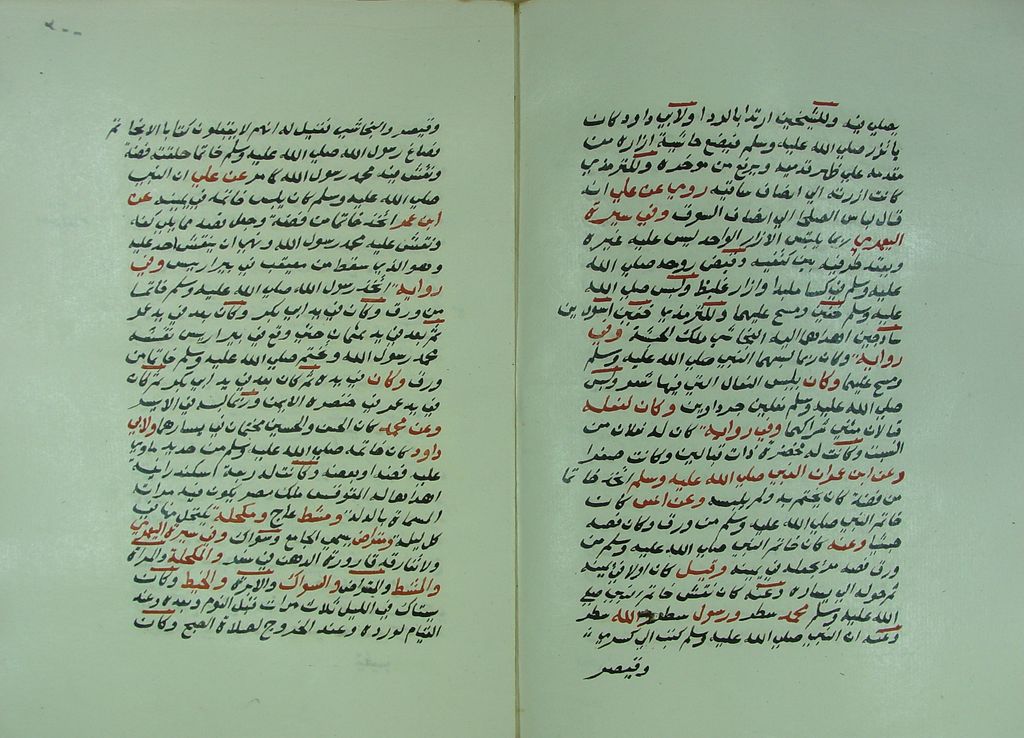 يصلي فيه وللشيخين ارتدا بالردا ولابي داود كان
ياتزر صلي الله عليه وسلم فيضع حاشية ازاره من
مقدمه علي ظهر قدميه ويرفع من موخره وللترمذي
كانت ازرته الي انصاف ساقيه روي عن علي انه
قال لباس الي انصاف السوق وفي سيرة
اليعمري ربما يلبس الازار الواحد ليس عليه غيره
ويعقد طرفيه بين كتفيه وقبض روحه صلي الله
عليه وسلم في كسا ملبد وازار غليظ ولبس صلي الله
عليه وسلم خفين ومسح عليهما وللترمذي خفين اسودين
ساذجين اهداهما اليه النجاشي ملك الحبشة وفي
رواية وكان ربما لبسهما النبي صلي الله عليه وسلم
ومسح عليهما وكان يلبس النعال التي فيها شعر ولبس
صلي الله عليه وسلم نعلين جرداوين وكان لنعله
قبالان مثني شراكهما وفي رواية كان له نعلان من
السبت وكانت له مخصرة ذات قبالين وكانت صفرا
وعن ابن عمران النبي صلي الله عليه وسلم اتخذ خاتما
من فضة كان يختم به ولم يلبسه وعن انس كان
خاتم النبي صلي الله عليه وسلم من ورق وكان فصه
حبشيا وعنه كان خاتم النبي صلي الله عليه وسلم من
ورق فصه منه يجعله في يمينه وقيل كان اولا في يمينه
ثم حوله الي يساره وعنه كان نقش خاتم النبي صلي
الله عليه وسلم محمد سطر ورسول سطر والله سطر
وعنه ان النبي صلي الله عليه وسلم كتب الي كسري
وقيصر
وقيصر والنجاشي فقيل له انهم لا يقبلون كتابا الا بخاتم
فصاغ رسول الله صلي الله عليه وسلم خاتما حلقته فضة
ونقش فيه محمد رسول الله كما مر عن علي ان النبي
صلي الله عليه وسلم كان يلبس خاتمه في يمينه عن
ابن عمر اتخذ خاتما من فضة وجعل فصه مما يلي كفه
ونقش عليه محمد رسول الله ونهي ان ينقش احد عليه
وهو الذي سقط من معيقب في بير اريس وفي
رواية اتخذ رسول الله صلي الله عليه وسلم خاتما
من ورق وكان في يد ابي بكر وكان بعد في يد عمر
ثم بعد في يد عثمان حتي وقع في بير اريس نقشه
محمد رسول الله وعنهم صلي الله عليه وسلم خاتما من
ورق وكان في يده ثم كان بعد في يد ابي بكر ثم كان
في يد عمر في خنصره الايمن وربما لبسه في الايسر
وعن محمد كان الحسن والحسين يختمان في يسارهما ولابي
داود كان خاتمه صلي الله عليه وسلم من حديد ملوي
عليه فضة وكانت له ربعة اسكندرانية
اهداها له المقوقس ملك مصر يكون فيه مراته
المسماة بالدلة ومشط عاج ومكحلة يكتحل منها في
كل ليلة ومقراض يسمي الجامع وسواك وفي سيرة اليعمري
ولا تفارقه قارورة الدهن في سفره والمكحلة والمراة
والمشط والمقراض والسواك والابرة والخيط وكان
يستاك في الليل ثلاث مرات قبل النوم وبعده وعند
القيام لورده وعند الخروج لصلاة الصبح وكان